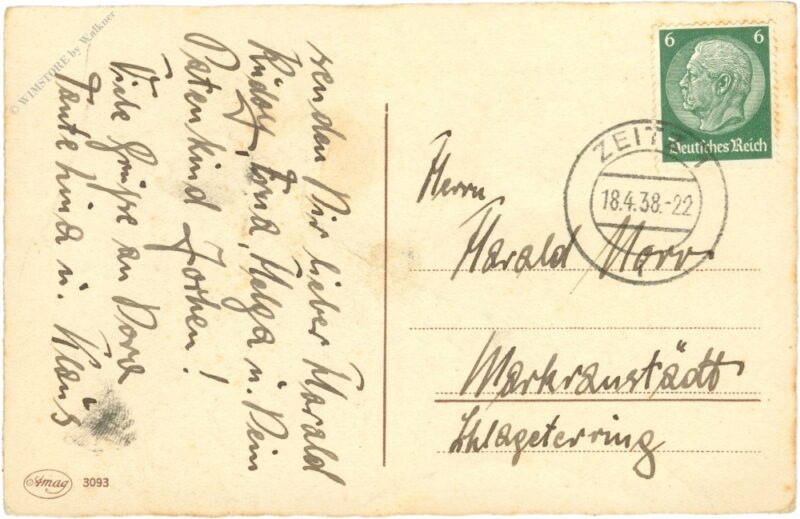 senden Dir lieber Harald
Rudolf, Tona, Helga u. Dein
Patenkind Jochen!
Viele Grüße an Dora
Tante Linda u. Klaus
© WIMSTORE by Walkner
6 6
Deutsches Reich
ZEITZ
18.4.38.-22
Herrn
Harald Morr
Markranstädt
Schlageterring
Amag 3093